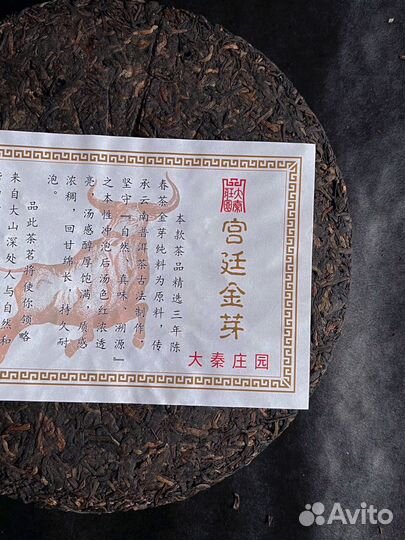 宫廷金芽
大秦庄园
本款茶品精选三年陈
春茶金芽纯料为原料，传
承云南普洱茶古法制作，
坚守『自然、真味、溯源』
之本性冲泡后汤色红浓透
亮，汤感醇厚饱满，质感
浓稠，回甘绵长，持久耐
泡。
品此茶茗将使你领略
来自大山深处人与自然和
Avito